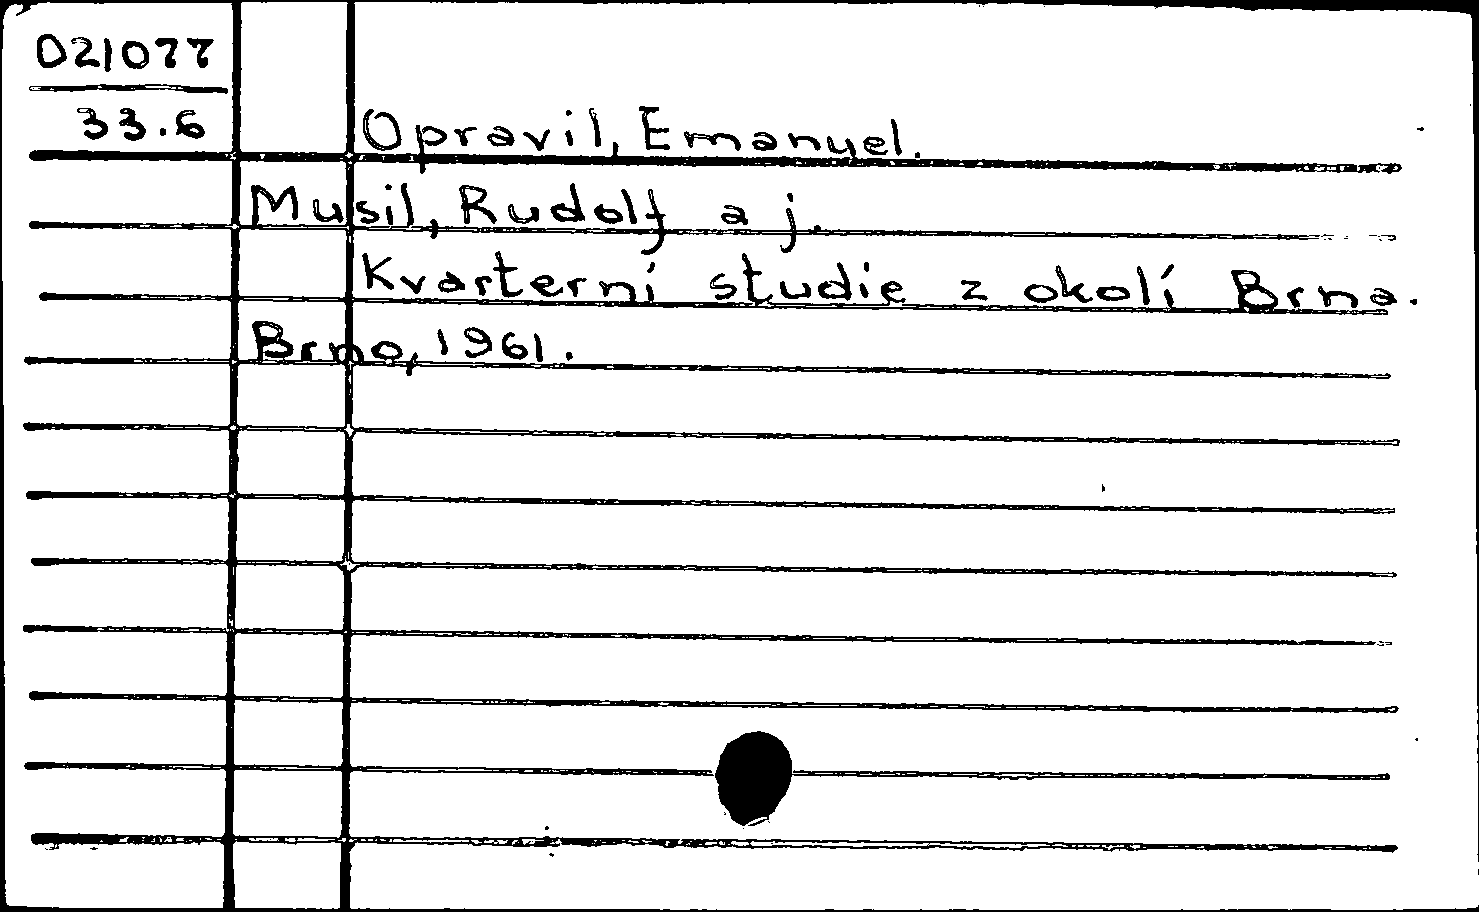 021077
33.6
Opravil, Emanuel.
Musil, Rudolf a j.
Kvarterní studie z okolí Brna.
Brno, 1961.